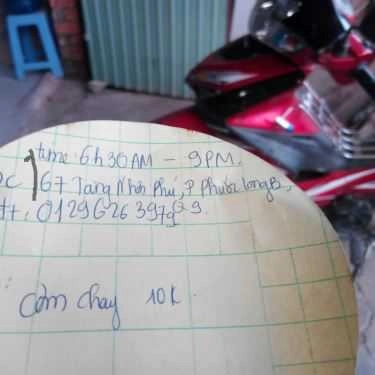 time: 6h30AM - 9PM.
ĐC 167 Tăng Nhơn Phú, P Phước Long B,
tt: 01296263979
Cơm chay 10k.